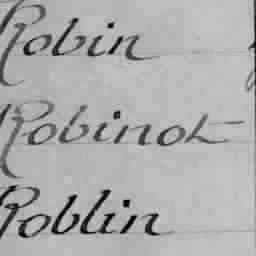 Robin
Robinot
Roblin